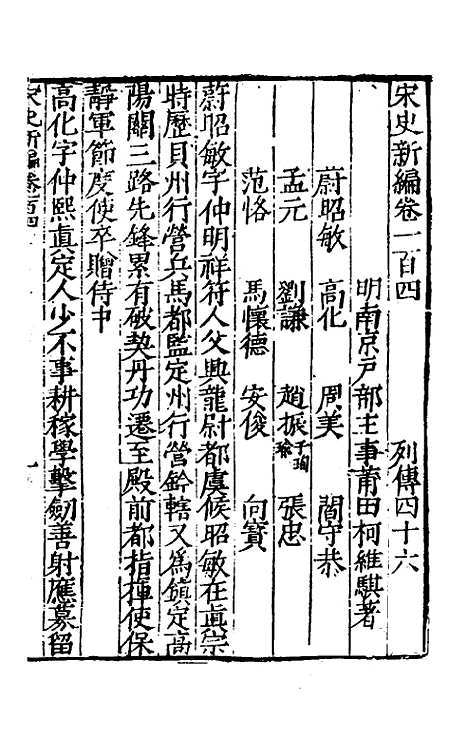 宋史新編卷一百四 列傳四十六
明南京戸部主事莆田柯維騏著
蔚昭敏 高化 周美 閻守恭
孟元 劉謙 趙振 子珣 瑜 張忠
范恪 馬懷德 安俊 向寳
蔚昭敏字仲明祥符人父興龍尉都虞候昭敏在眞宗
時歷貝州行營兵馬都監定州行營鈐轄又爲鎮定高
陽關三路先鋒累有破契丹功遷至殿前都指揮使保
靜軍節度使卒贈侍中
高化字仲熙眞定人少不事耕稼學擊劒善射應募留
宋史新編卷一百四